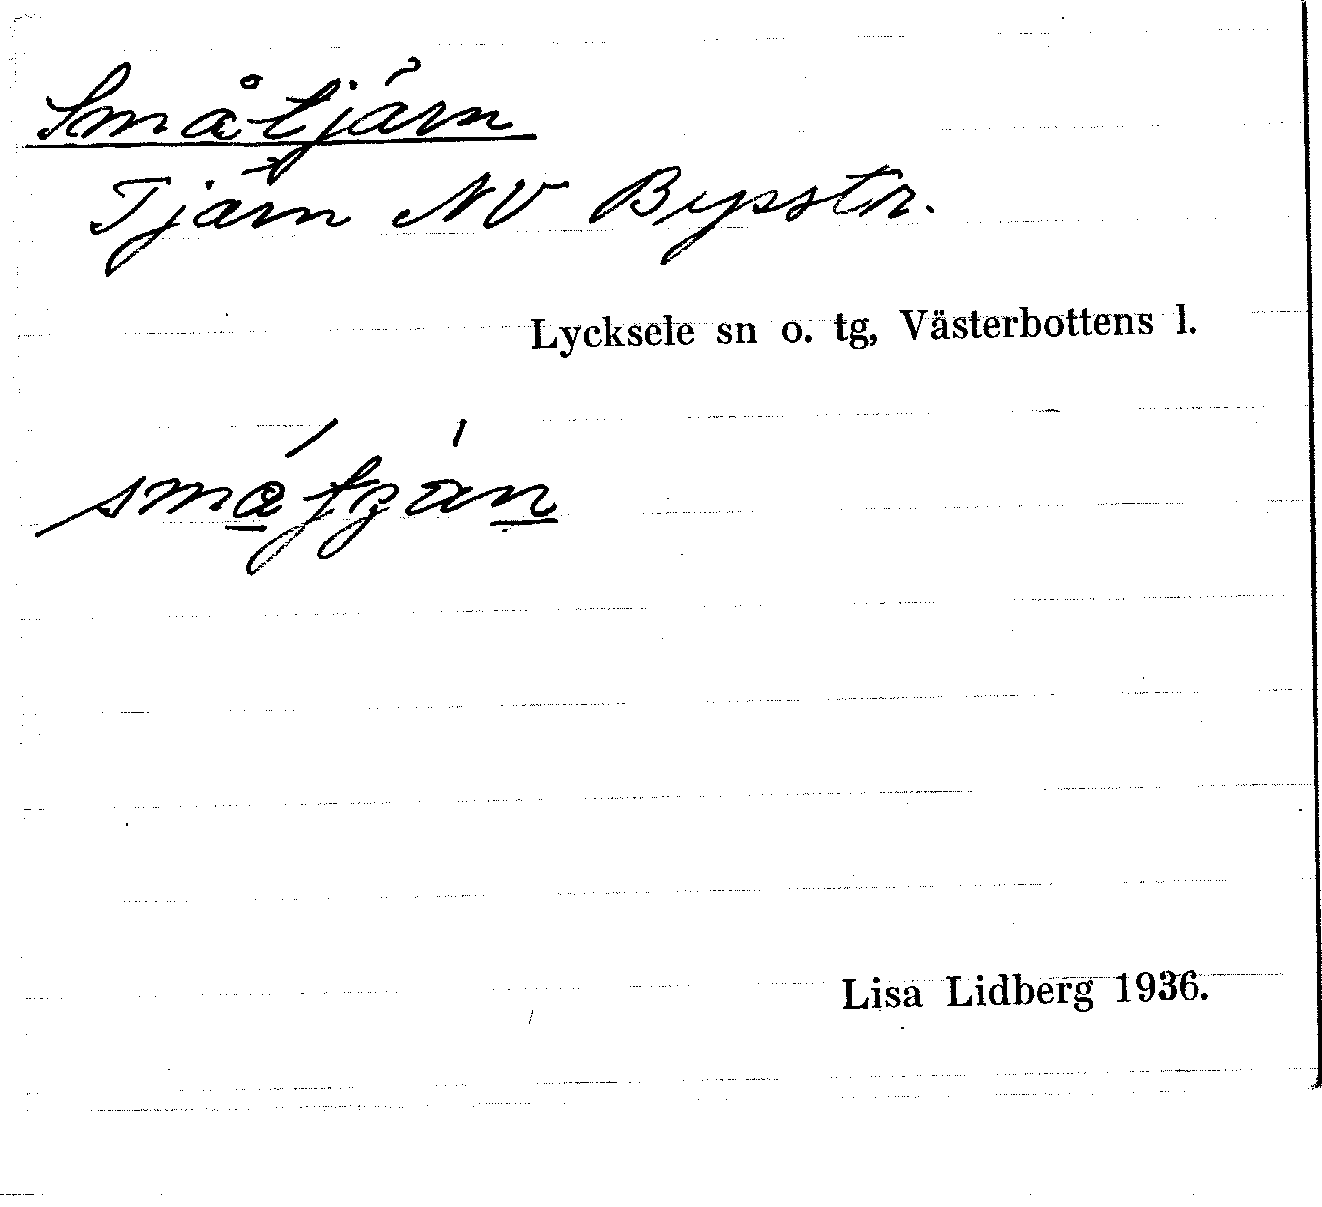 Småtjärn
Tjärn NV Bysstr.
Lycksele sn o. tg, Västerbottens l.
Lisa Lidberg 1936.